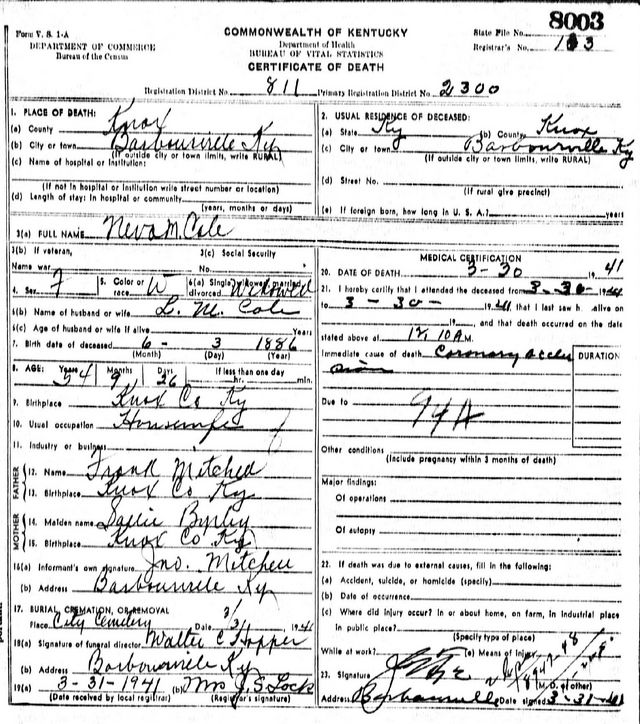 8003
Form V. S. 1-A
COMMONWEALTH OF KENTUCKY
State File No.
DEPARTMENT OF COMMERCE
Department of Health
Registrar's No. 133
Bureau of the Census
BUREAU OF VITAL STATISTICS
CERTIFICATE OF DEATH
Registration District No. 811 Primary Registration District No. 2300
1. PLACE OF DEATH:
(a) County Knox
(b) City or town Barbourville Ky
(If outside city or town limits, write RURAL)
(c) Name of hospital or institution:
(If not in hospital or institution write street number or location)
(d) Length of stay: In hospital or community
(years, months or days)
2. USUAL RESIDENCE OF DECEASED:
(a) State Ky (b) County Knox
(c) City or town Barbourville Ky
(If outside city or town limits, write RURAL)
(d) Street No.
(If rural give precinct)
(e) If foreign born, how long in U. S. A.? years
3(a) FULL NAME Neva M. Cole
3(b) If veteran, 3(c) Social Security
Name war No.
4. Sex F 5. Color or race W 6(a) Single, widowed, married, divorced Widowed
6(b) Name of husband or wife L. M. Cole
6(c) Age of husband or wife if alive Years
7. Birth date of deceased 6 - 3 1886
(Month) (Day) (Year)
8. AGE: Years Months Days If less than one day
54 9 26 hr. min.
9. Birthplace Knox Co Ky
10. Usual occupation Housewife
11. Industry or business
FATHER
12. Name Frank Mitchell
13. Birthplace Knox Co Ky
MOTHER
14. Maiden name Sallie
15. Birthplace Knox Co Ky
16(a) Informant's own signature Jno. Mitchell
(b) Address Barbourville Ky
17. BURIAL, CREMATION, OR REMOVAL
Place City Cemetery Date 3/31 1941
18(a) Signature of funeral director Walter C Hopper
(b) Address Barbourville Ky
19(a) 3-31-1941 (b) Mrs J. S. Lock
(Date received by local registrar) (Registrar's signature)
MEDICAL CERTIFICATION
20. DATE OF DEATH 3-30 1941
21. I hereby certify that I attended the deceased from 3-30-1941
to 3-30- 1941 that I last saw h alive on
19 , and that death occurred on the date
stated above at 12,10 A M.
Immediate cause of death Coronary occlusion
DURATION
Due to 94A
Other conditions
(Include pregnancy within 3 months of death)
Major findings:
Of operations
Of autopsy
22. If death was due to external causes, fill in the following:
(a) Accident, suicide, or homicide (specify)
(b) Date of occurrence
(c) Where did injury occur? In or about home, on farm, in industrial place
in public place?
(Specify type of place)
While at work? (e) Means of injury
23. Signature
(M. D. or other)
Address Barbourville Date signed 3-31-41